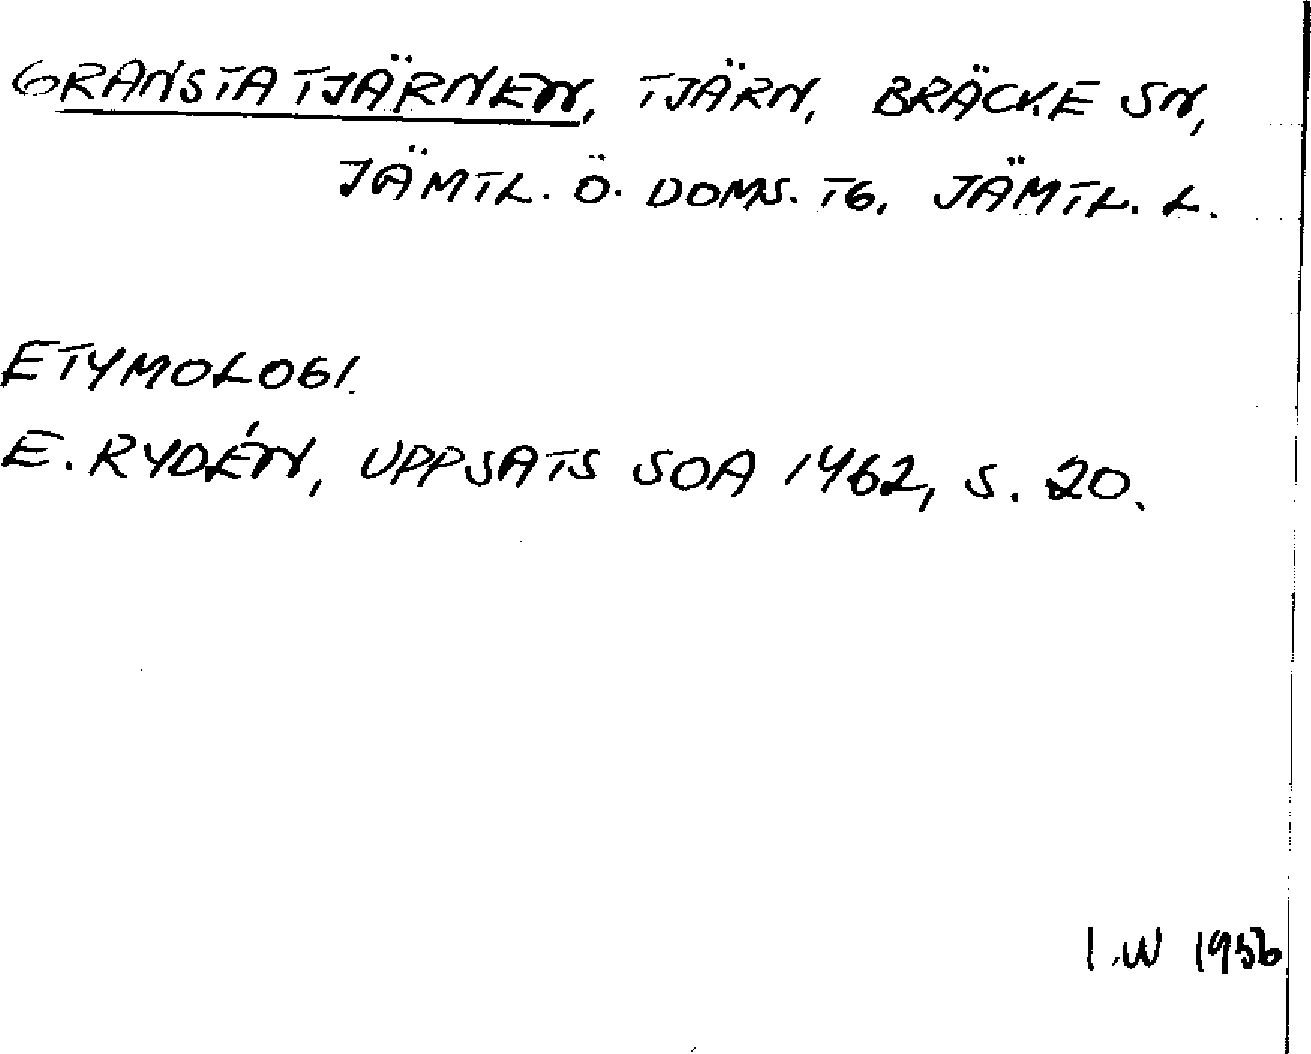 GRANSTATJÄRNEN, TJÄRN, BRÄCKE SN,
JÄMTL. Ö. DOMS. TG. JÄMTL. L.
ETYMOLOGI.
E. RYDÉN, UPPSATS SOA 1462, S. 20.
I.W 1956